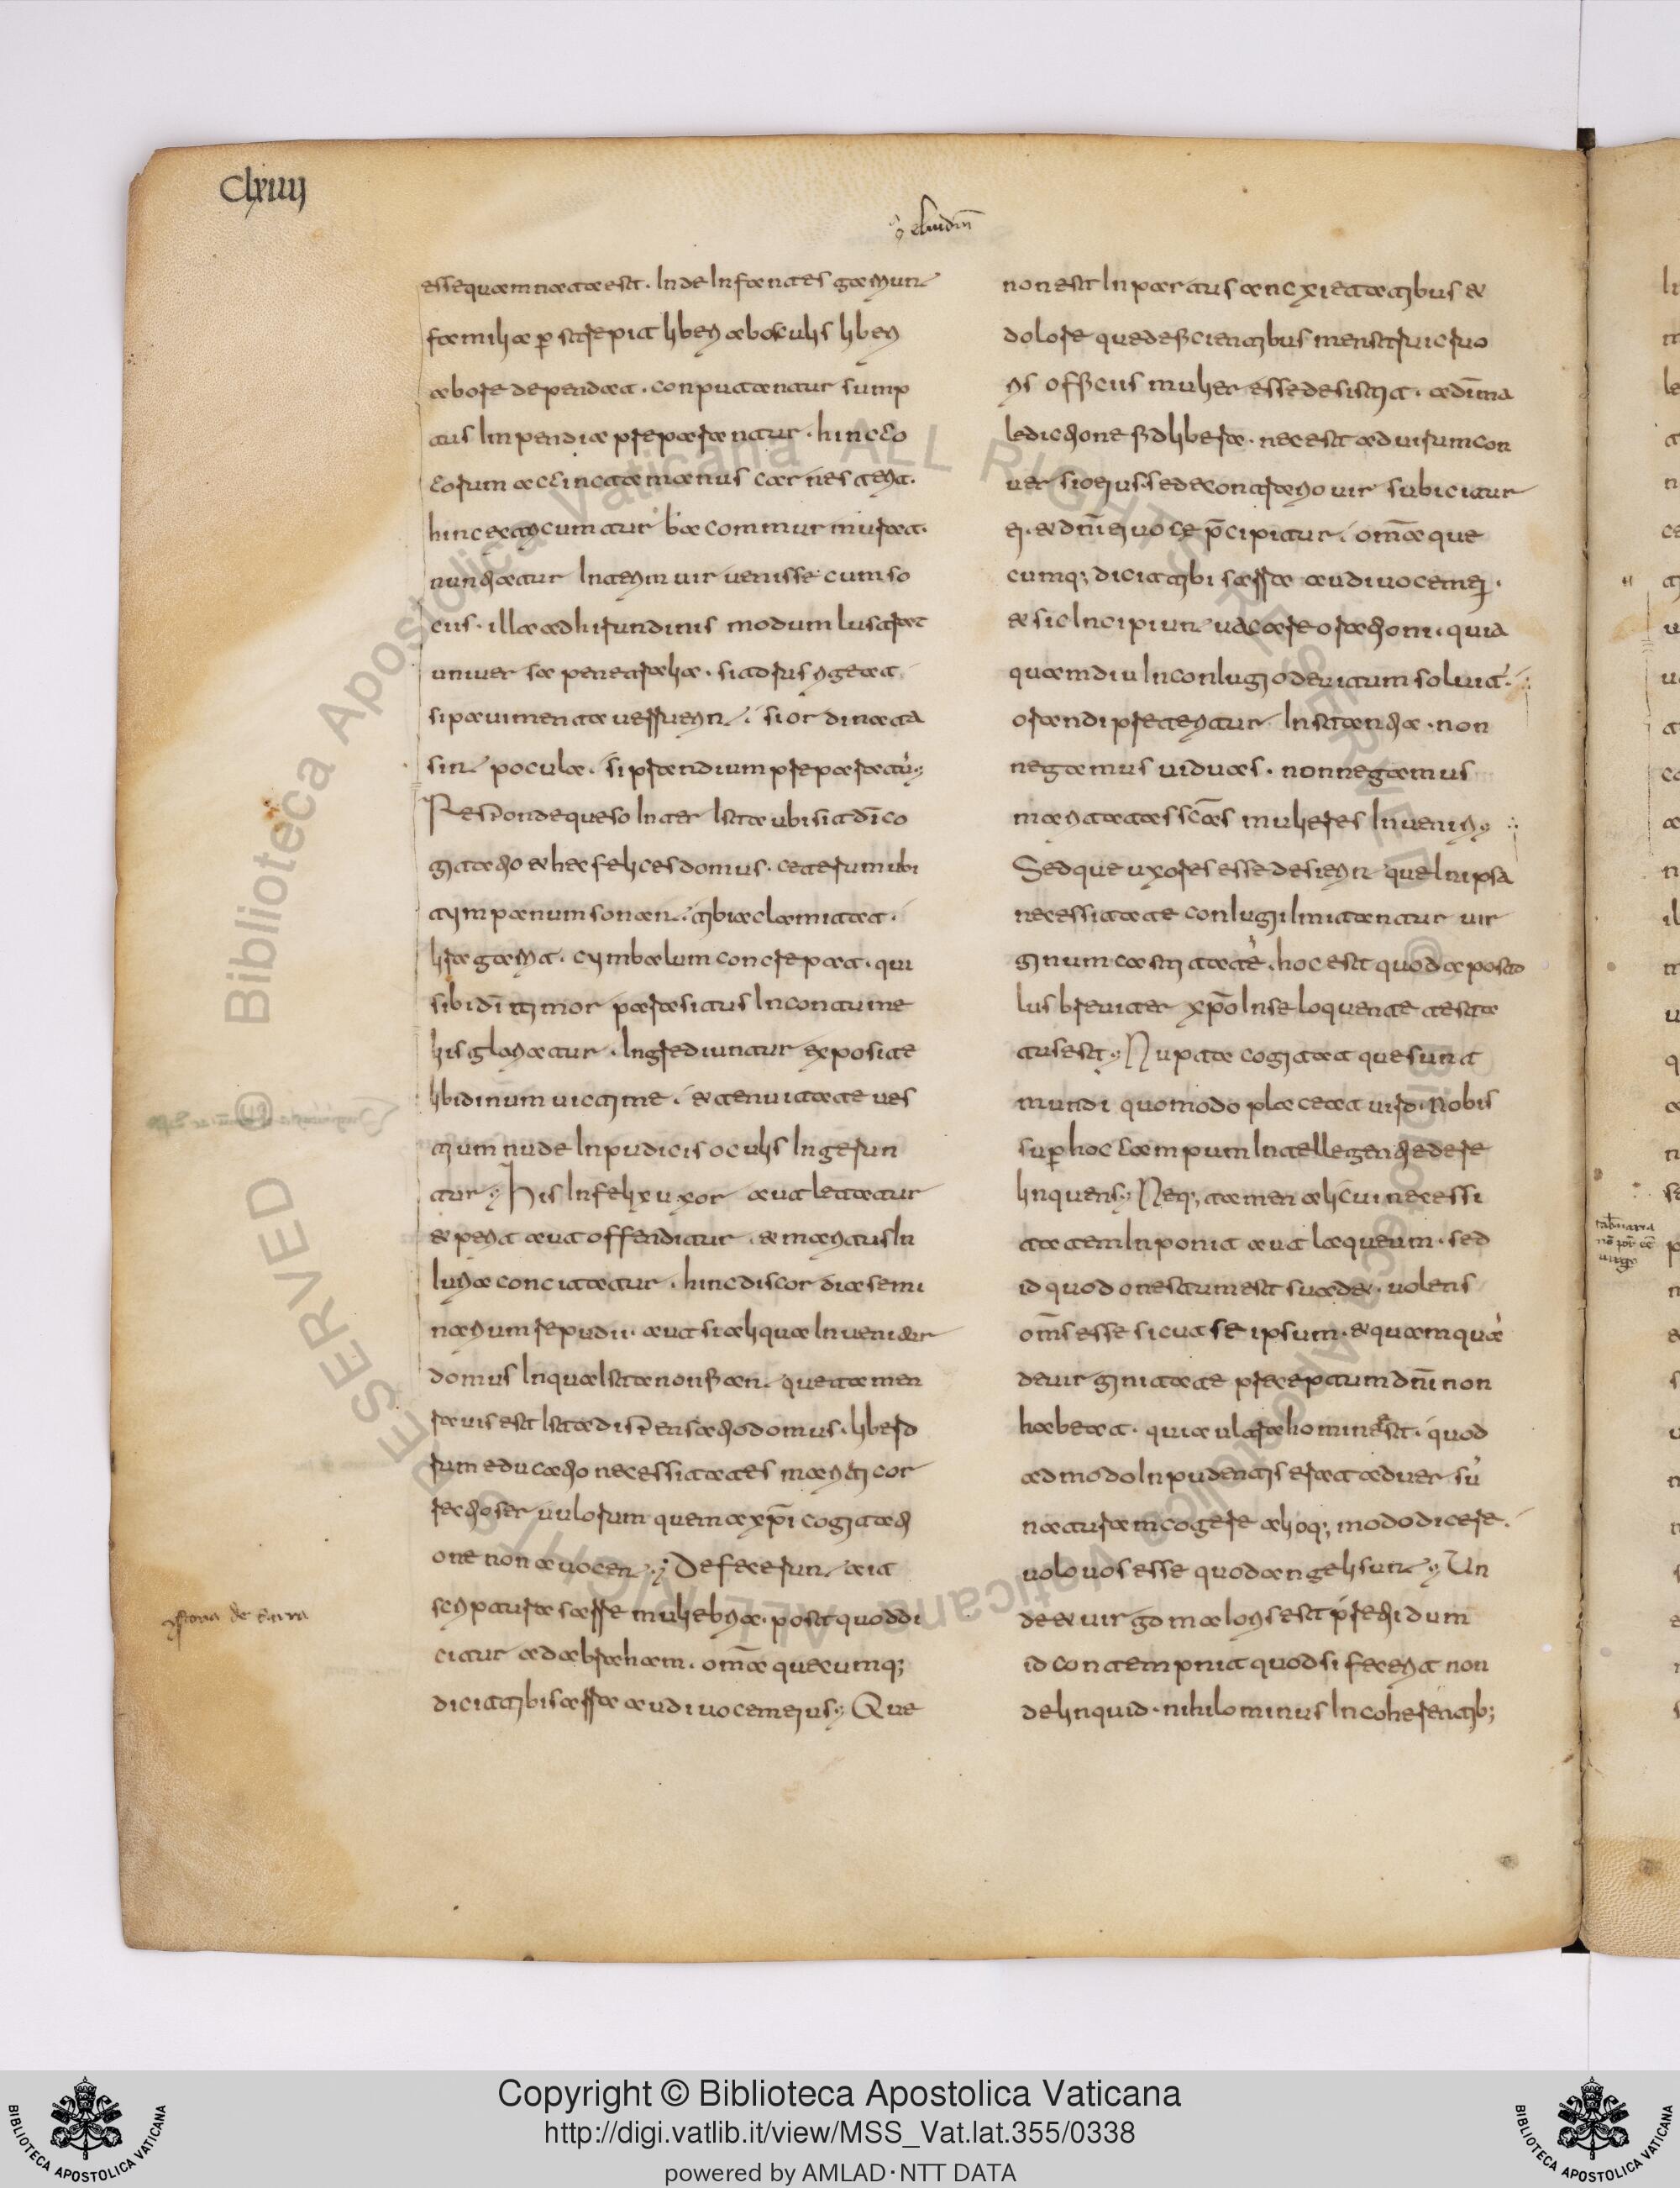 Clxiiii
ꝯ eluidiū
esse quam nata est. Inde Infantes garriun
familia perstrepit liberi ab osculis liberi
ab ore dependeat. conputantur sump
tus Inpendia preparantur. hinc co
corum accincta manus carnes terit.
hinc textricum tur ba commurmurat.
nuntiatur Interim uir uenisse cum so
ciis. illa ad hirundinis modum lustrat
uniuersa penetralia. si torus rigeat
si pauimenta uerrerin. si ordinata
sin pocula. si prandium preparatū.
Responde queso Inter Ista ubi sit dī co
gitatio et hec felices domus. ceterum ubi
tympanum sonan. tibia clamitat.
lira garrit. cymbalum concrepat. qui
sibi dī timor parasitus In contume
liis gloriatur. Ingrediuntur exposite
libidinum uictime. et tenuitate ues
tium nude Inpudicis oculis Ingerun
tur. His Infelix uxor aut letatur
et perit aut offenditur. et maritus In
Iuria concitatur. hinc discordia semi
narium repudii. aut si aliqua Inuenitur
domus In qua Ista non fian. que tamen
rara uis est Ista dispensatio domus. libero
rum educatio necessitates mariti cor
rectio seruulorum quem a xpī cogitati
one non auocen. Defecerun ait
scriptura sarre muliebria. post quod di
citur ad abraham. omā quecumq;
dicit tibi sarra audi uocem eius. Que
ystoria de Sarra
non est In partus anxietatibus et
dolore que deficientibus menstrui cruo
ris officiis mulier esse desistit. a dī ma
ledictione fit libera. nec est ad uirum con
uersio eius sed e contrario uir subicitur
ei. et dnī ei uoce precipitur. omā que
cumq; dicit tibi sarra audi uocem ei.
et sic Incipiun uacare orationi. quia
quamdiu In coniugio debitum soluit.
orandi preteritur Instantia. non
negamus uiduas. non negamus
maritatas scās mulieres Inueniri
Sed que uxores esse desierin que In ipsa
necessitate coniugii Imitantur uir
ginum castitatē. hoc est quod aposto
lus breuiter xpō In se loquente testa
tus est. Nupta cogitat que sunt
mundi quomodo placeat uiro. Nobis
super hoc campum Intellegentie dere
linquens. Neq; tamen alicui necessi
tatem Inponit aut laqueum. sed
id quod onestum est suadet. uolens
oms esse sicut se ipsum. et quamquā
de uirginitate preceptum dnī non
habeat. quia ultra hominē est. quod
ad modo Inpudentis erat aduersū
naturam cogere alioq; modo dicere.
uolo uos esse quod angeli sun. Un
de et uirgo maioris est premii dum
id contempnit quod si fecerit non
delinquid. nihilominus In coherentib;
Copyright © Biblioteca Apostolica Vaticana
http://digi.vatlib.it/view/MSS_Vat.lat.355/0338
powered by AMLAD·NTT DATA
BIBLIOTECA APOSTOLICA VATICANA
BIBLIOTECA APOSTOLICA VATICANA